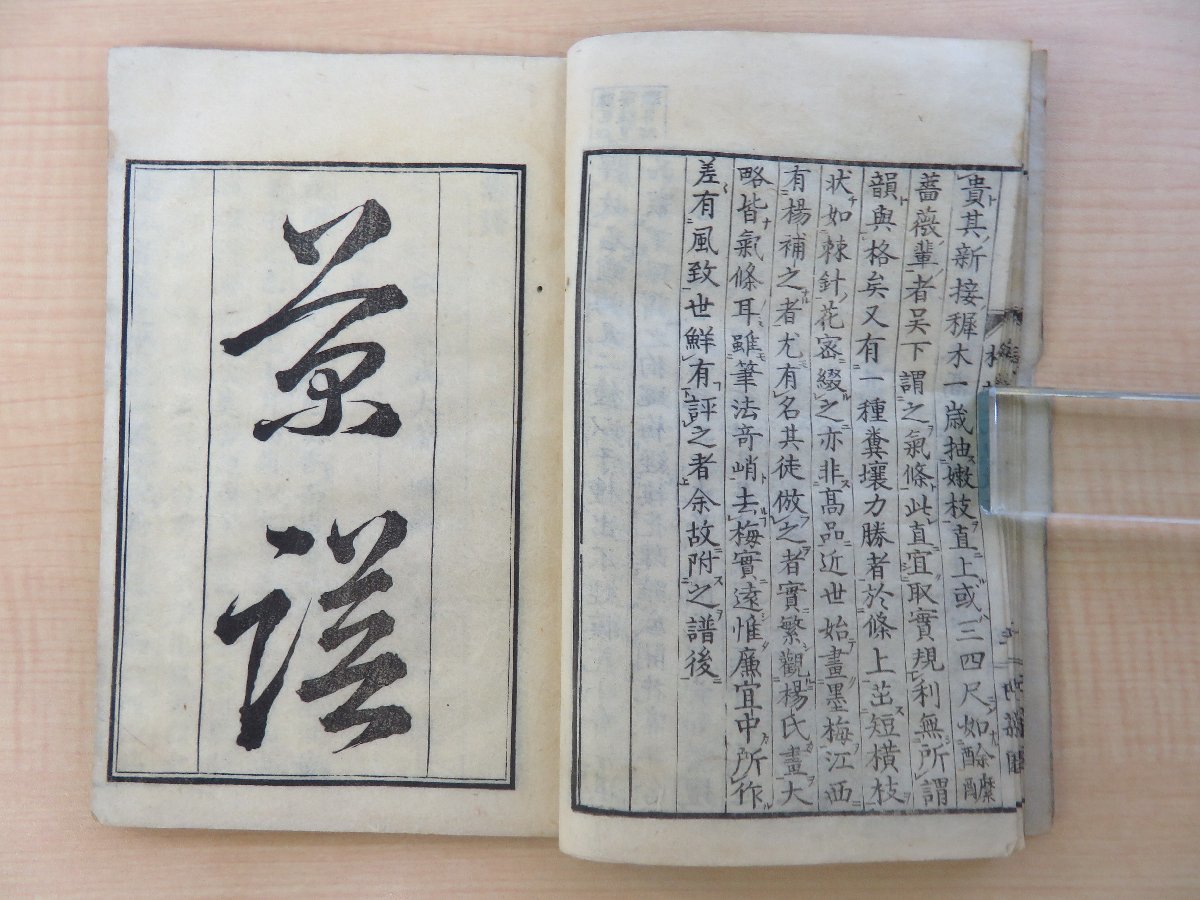 貴其新接穉木一歳抽嫩枝直上或三四尺如酴醾
薔薇輩者吴下謂之氣條此直宜取實規利無所謂
韻與格矣又有一種糞壤力勝者於條上茁短横枝
状如棘針花密綴之亦非髙品近世始畫墨梅江西
有楊補之者尤有名其徒倣之者實繁觀楊氏畫大
略皆氣條耳雖筆法竒峭去梅實遠惟廉宜中所作
差有風致世鮮有評之者余故附之譜後
菊譜